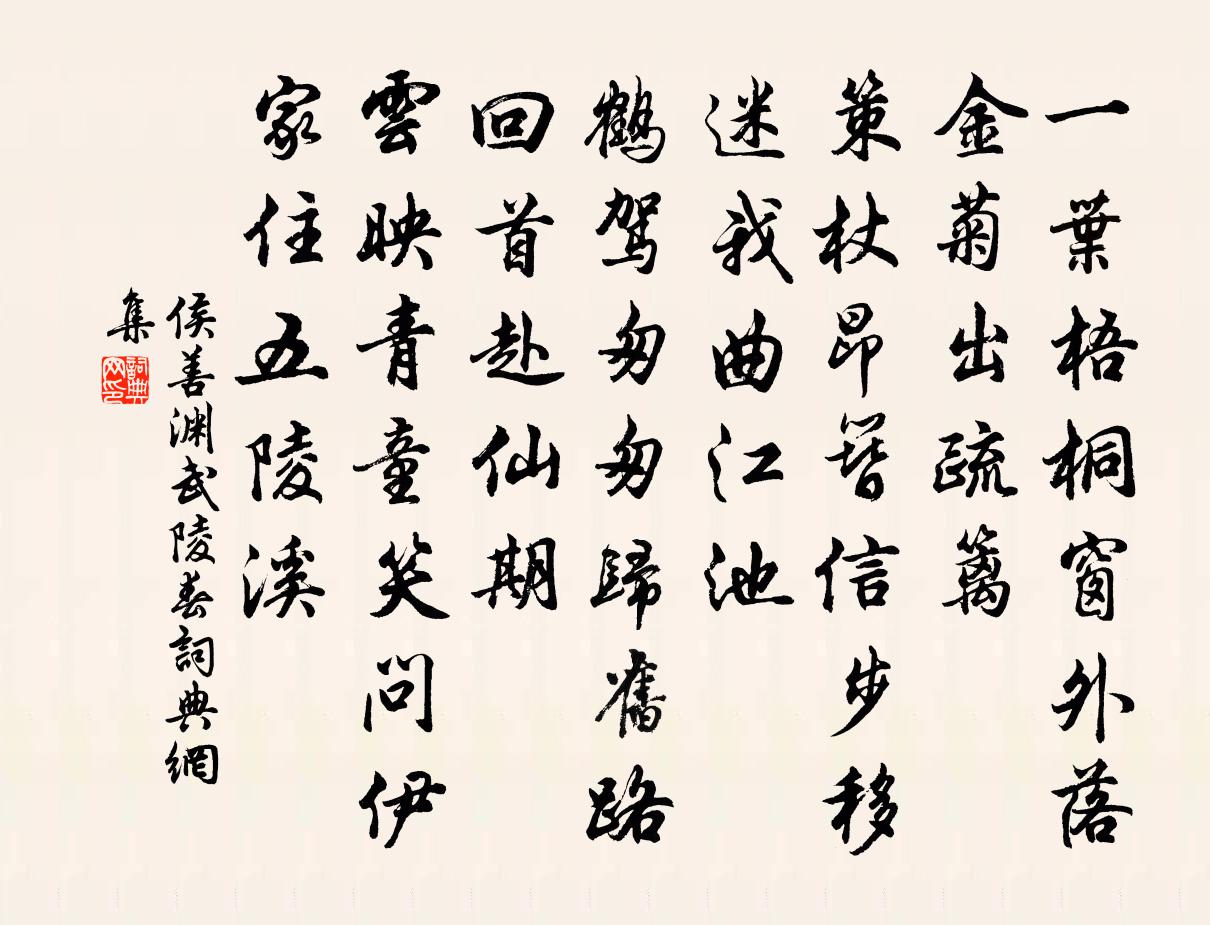 一葉梧桐窗外落
金菊出疏籬
策杖昂簪信步移
迷我曲江池
鶴駕匆匆歸舊路
回首赴仙期
雲映青童笑問伊
家住五陵溪
侯善渊武陵春詞典網
集
詞典
网印